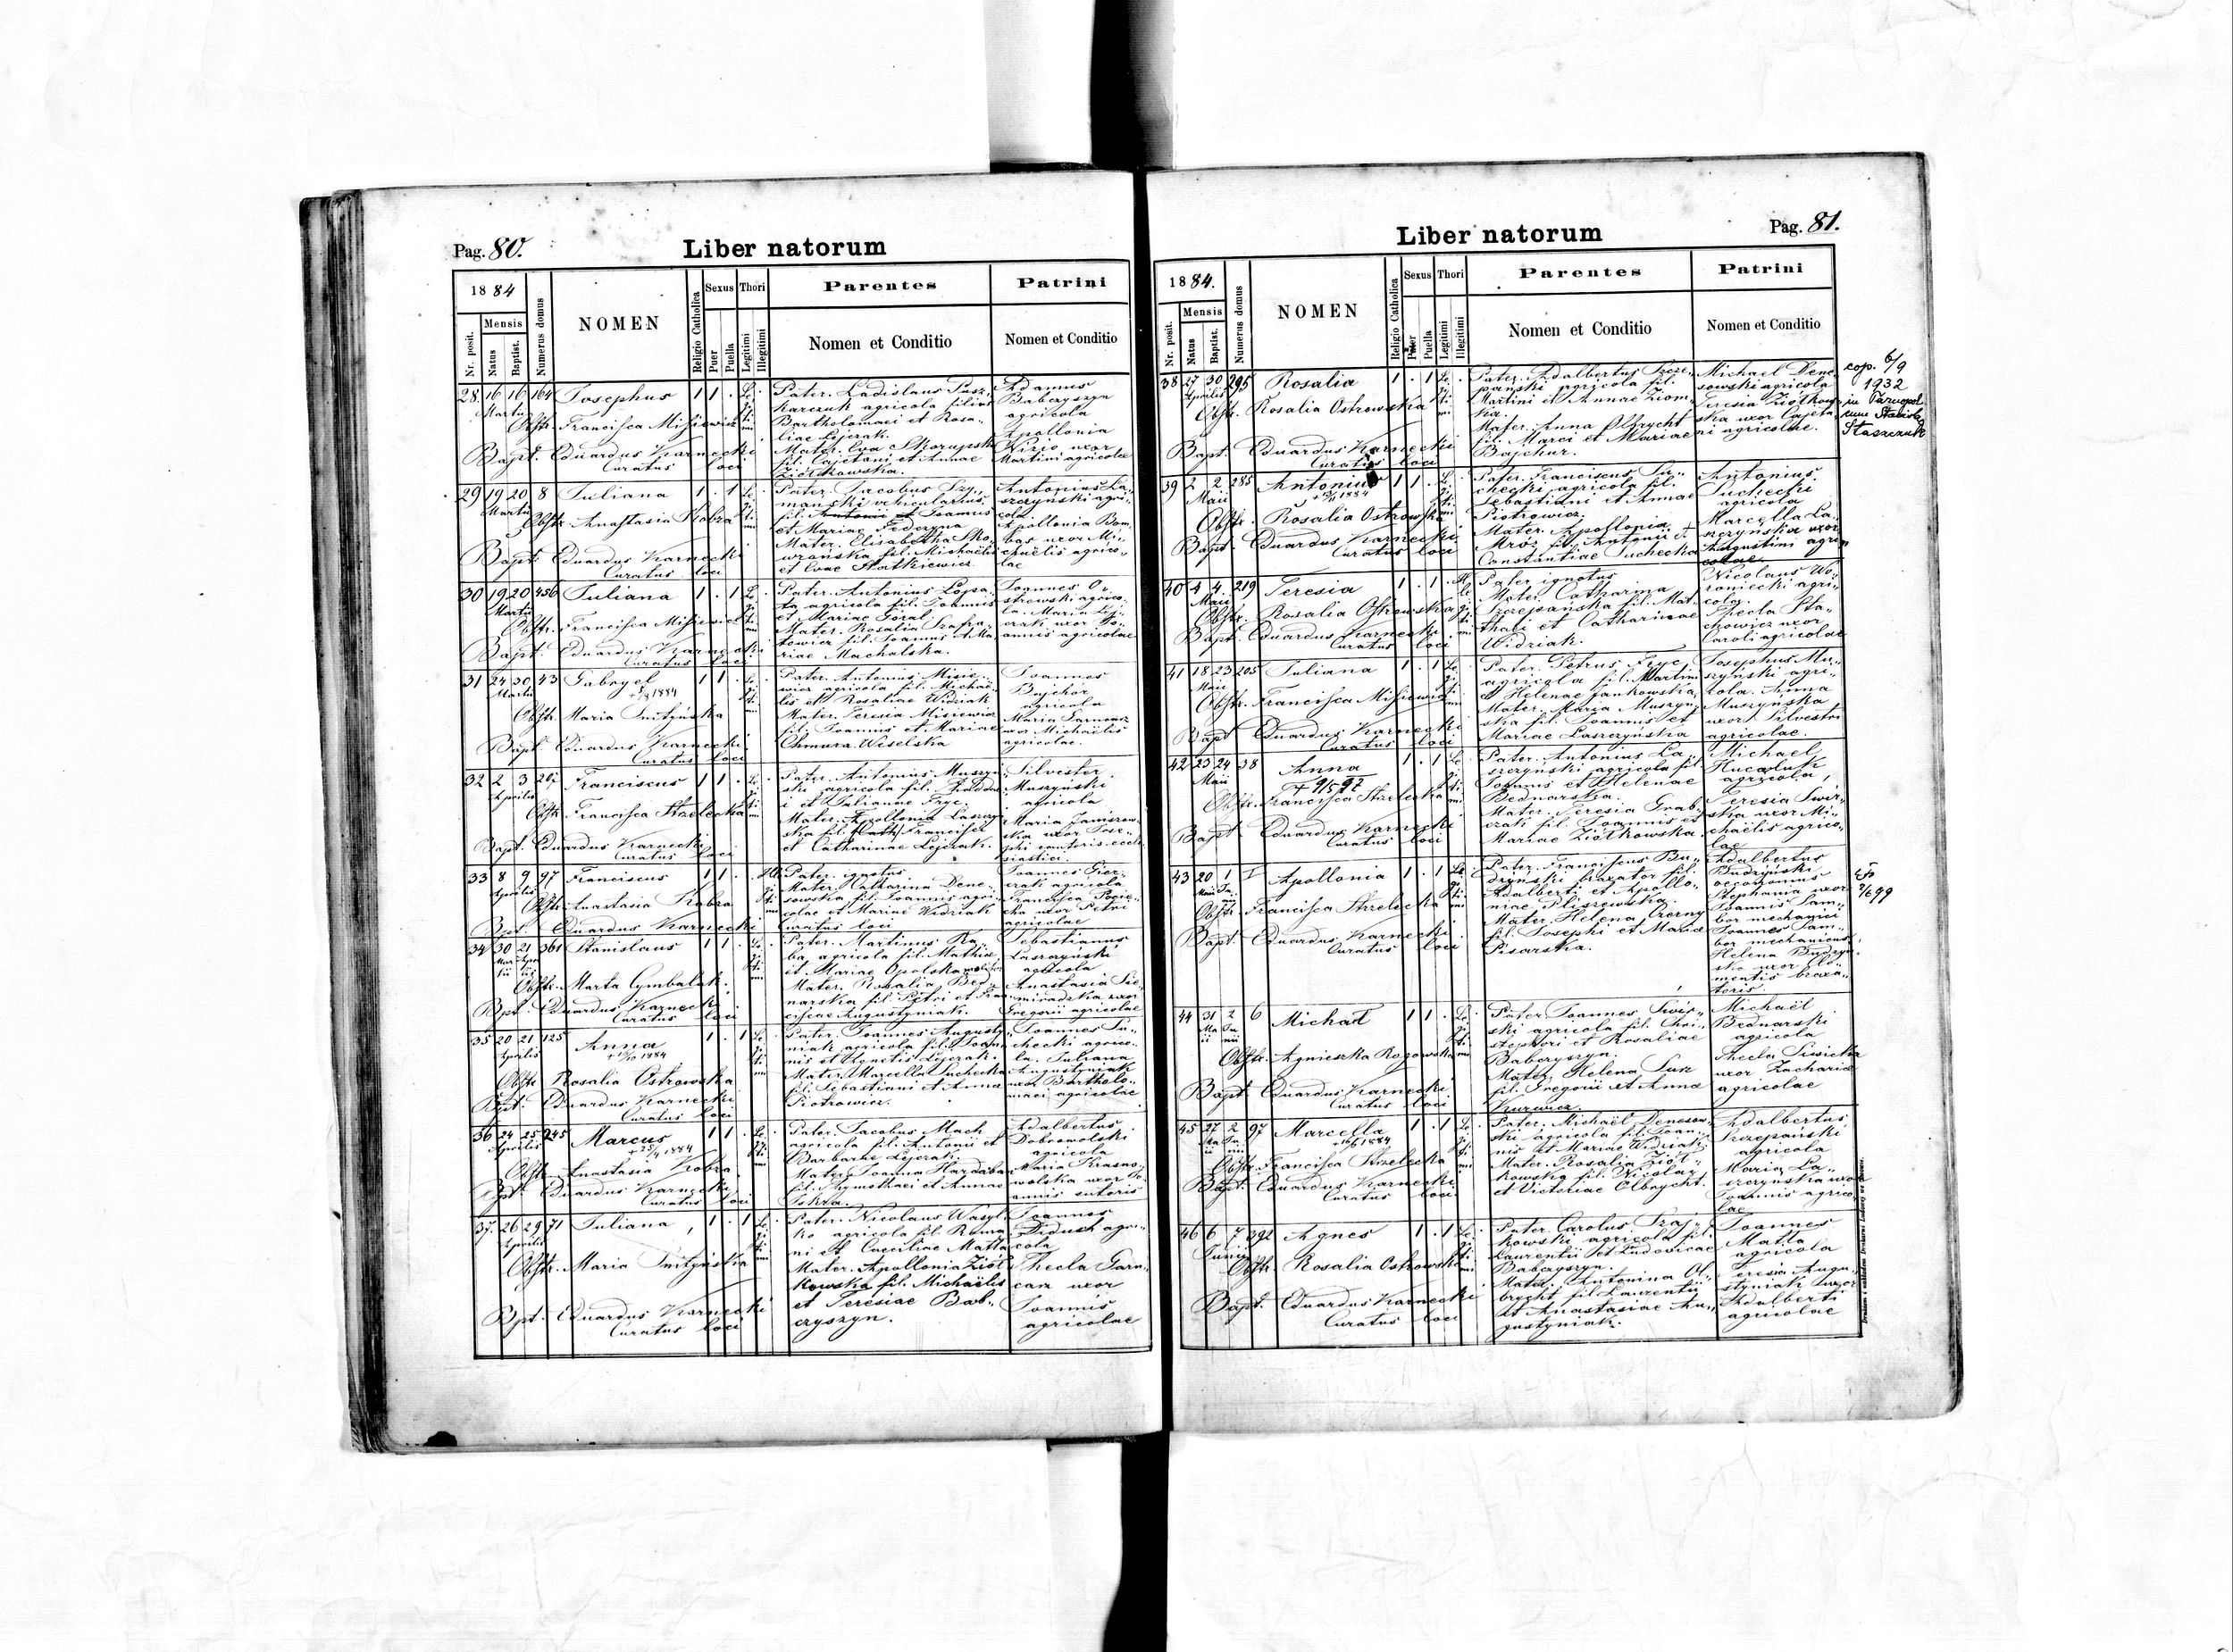 Pag. 80.
Liber natorum
1884
Nr. posit.
Mensis
Natus
Baptist.
Numerus domus
NOMEN
Religio Catholica
Sexus
Puer
Puella
Thori
Legitimi
Illegitimi
Parentes
Nomen et Conditio
Patrini
Nomen et Conditio
28 16 16 164 Josephus 1 1
Martii
Obstr. Francisca Misiewicz
Bapt. Eduardus Karnecki
Curatus loci
Pater. Ladislaus
agricola filius
Bartholomaei et Rosa-
liae Lejczak.
Mater. Eva Skorupska
fil. Cajetani et Annae
Ziółkowska.
Adamus
Babczyszyn
agricola
Apollonia
uxor
Martini agricolae
29 19 20 8 Juliana 1 . 1
Martii
Obstr. Anastasia Kobza
Bapt. Eduardus Karnecki
Curatus loci
Pater. Jacobus Szy-
mański vehicularius
fil. Antonii et Joannis
et Mariae Fedczyna
Mater. Elisabetha Sko-
fil. Michaelis
et Evae Statkiewicz
Antonius La-
szczyński agri-
cola
Apollonia Bom-
bas uxor Mi-
chaëlis agrico-
lae
30 19 20 456 Juliana 1 . 1
Martii
Obstr. Francisca Misiewicz
Bapt. Eduardus Karnecki
Curatus loci
Pater. Antonius Łopa-
ta agricola fil. Joannis
et Mariae Góral
Mater. Rosalia Szafra-
towicz fil. Joannis et Ma-
riae Machalska.
Joannes O-
strowski agrico-
la. Maria Lej-
czak uxor Jo-
annis agricolae
31 24 30 43 Gabryel 1 1
Martii
1884
Obstr. Maria Snityńska
Bapt. Eduardus Karnecki
Curatus loci
Pater. Antonius Misie-
wicz agricola fil. Michaë-
lis et Rosaliae Widziak
Mater. Teresia Misiewicz
fil. Joannis et Mariae
Chmura Weselska
Joannes
Bajchór
agricola
Maria
uxor Michaëlis
agricolae.
32 2 3 Franciscus 1 1
Aprilis
Obstr. Francisca Strzelecka
Bapt. Eduardus Karnecki
Curatus loci
Pater. Antonius Muszyń-
ski agricola fil. Thaddae-
i et Julianae Fryc.
Mater. Apollonia Laszczyń-
ska fil. Francisci
et Catharinae Lejczak.
Silvester
Muszyński
agricola
Maria Janiszew-
ska uxor Jose-
phi cantoris eccle-
siastici.
33 8 9 97 Franciscus 1 1
Aprilis
Obstr. Anastasia Kobza
Bpt. Eduardus Karnecki
Curatus loci
Pater. ignotus
Mater. Catharina Dene-
sowska fil. Joannis agri-
colae et Mariae Widziak
Joannes Gier-
czak agricola
Francisca
uxor Petri
agricolae
34 30 21 361 Stanislaus 1 1
Obstr. Marta Cymbalak.
Bpt. Eduardus Karnecki
Curatus loci
Pater. Martinus Ra-
ba agricola fil. Mathiae
et Mariae Opolska
Mater. Rosalia Bed-
narska fil. Petri et Fran-
ciscae Augustyniak.
Sebastianus
Laszczyński
agricola
Anastasia Sie-
miradzka uxor
Gregorii agricolae
35 20 21 125 Anna 1 . 1
Aprilis
1884
Obstr. Rosalia Ostrowska
Bpt. Eduardus Karnecki
Curatus loci
Pater. Joannes Augusty-
niak agricola fil. Joan-
nis et Agnetis Lejczak.
Mater. Marcella Suchecka
fil. Sebastiani et Annae
Piotrowicz.
Joannes Su-
checki agrico-
la. Juliana
Augustyniak
uxor Bartholo-
maei agricolae
36 24 25 245 Marcus 1 1
Aprilis
1884
Obstr. Anastasia Kobza
Bpt. Eduardus Karnecki
Curatus loci
Pater. Jacobus Mach
agricola fil. Antonii et
Barbarae Lejczak.
Mater. Joanna Hardaban
fil. Tymothaei et Annae
Iskra.
Adalbertus
Dobrowolski
agricola
Maria Krasno-
wolska uxor Jo-
annis sutoris
37. 26 29 71 Juliana 1 . 1
Aprilis
Obstr. Maria Snityńska
Bpt. Eduardus Karnecki
Curatus loci
Pater. Nicolaus Wasyl-
ko agricola fil. Roma-
ni et Caeciliae Matła
Mater. Apollonia Ziół-
kowska fil. Michaëlis
et Teresiae Bab-
czyszyn.
Joannes
Diduch agri-
cola
Thecla Garn-
carz uxor
Joannis
agricolae
Pag. 81.
Liber natorum
1884.
Nr. posit.
Mensis
Natus
Baptist.
Numerus domus
NOMEN
Religio Catholica
Sexus
Puer
Puella
Thori
Legitimi
Illegitimi
Parentes
Nomen et Conditio
Patrini
Nomen et Conditio
38 27 30 295 Rosalia 1 . 1
Aprilis
Obstr. Rosalia Ostrowska
Bapt. Eduardus Karnecki
Curatus loci
Pater. Adalbertus Szcze-
pański agricola fil.
Martini et Annae Ziom-
ka.
Mater. Anna Olbrycht
fil. Marci et Mariae
Bajchur.
Michaël Dene-
sowski agricola
Teresia Ziółkow-
ska uxor Cajeta-
ni agricolae.
cop. 6/9
1932
in Tarnopol
cum
Staszczuk
39 2 2 285 Antonius 1 1
Maii
1884
Obstr. Rosalia Ostrowska
Bapt. Eduardus Karnecki
Curatus loci
Pater. Franciscus Su-
checki agricola fil.
Sebastiani et Annae
Piotrowicz.
Mater. Apollonia
Mróz fil. Antonii et
Constantiae Suchecka
Antonius
Suchecki
agricola
Marcella La-
szczyńska uxor
Augustini agri-
colae
40 4 4 219 Teresia 1 . 1
Maii
Obstr. Rosalia Ostrowska
Bapt. Eduardus Karnecki
Curatus loci
Pater ignotus
Mater. Catharina
Szczepańska fil. Mat-
thaei et Catharinae
Widziak.
Nicolaus Wo-
roniecki agri-
cola.
Thecla Sta-
chowicz uxor
Caroli agricolae
41 18 23 205 Juliana 1 . 1
Maii
Obstr. Francisca Misiewicz
Bapt Eduardus Karnecki
Curatus loci
Pater. Petrus Fryc
agricola fil. Martini
et Helenae Jankowska
Mater. Maria Muszyń-
ska fil. Joannis et
Mariae Laszczyńska
Josephus Mu-
szyński agri-
cola. Anna
Muszyńska
uxor Silvestri
agricolae.
42 23 24 38 Anna 1 . 1
Maii
Obstr. Francisca Strzelecka
Bapt Eduardus Karnecki
Curatus loci
Pater. Antonius La-
szczyński agricola fil.
Joannis et Helenae
Bednarska.
Mater. Teresia Grab-
czak fil. Joannis et
Mariae Ziółkowska
Michaël
Hucaluk
agricola,
Teresia Świr-
ska uxor Mi-
chaëlis agrico-
lae
43 20 1 I Apollonia 1 . 1
Obstr. Francisca Strzelecka
Bapt. Eduardus Karnecki
Curatus loci
Pater. Franciscus Bu-
dzyński braxator fil.
Adalberti et Apollo-
niae Pliszewska.
Mater. Helena Czerny
fil. Josephi et Mariae
Pisarska.
Adalbertus
Budzyński
oeconomus
Stephania uxor
Joannis Sam-
bor mechanici
Joannes Sam-
bor mechanicus
Helena Budzyń-
ska uxor Cle-
mentis braxa-
toris.
44 31 2 6 Michał 1 1
Obstr. Agnieszka Rogowska
Bapt Eduardus Karnecki
Curatus loci
Pater Joannes Świr-
ski agricola fil. Chri-
stophori et Rosaliae
Babczyszyn.
Mater. Helena
fil. Gregorii et Annae
Kurwicz.
Michaël
Bednarski
agricola
Thecla Siwicka
uxor Zachariae
agricolae
45 27 2 97 Marcella 1 . 1
1884
Obstr. Francisca Strzelecka
Bapt. Eduardus Karnecki
Curatus loci
Pater. Michaël Denesow-
ski agricola fil. Joan-
nis et Mariae Widziak
Mater. Rosalia Ziół-
kowska fil. Nicolai
et Victoriae Olbrycht.
Adalbertus
Szczepański
agricola
Maria La-
szczyńska uxor
Joannis agrico-
lae
46 6 7 392 Agnes 1 . 1
Junii
Obstr. Rosalia Ostrowska
Bapt. Eduardus Karnecki
Curatus loci
Pater. Carolus Szaj-
kowski agricola fil.
Laurentii et Ludovicae
Babczyszyn.
Mater. Antonina Ol-
brycht fil. Laurentii
et Anastasiae Au-
gustyniak.
Joannes
Matła
agricola
Teresia Augu-
styniak uxor
Adalberti
agricolae